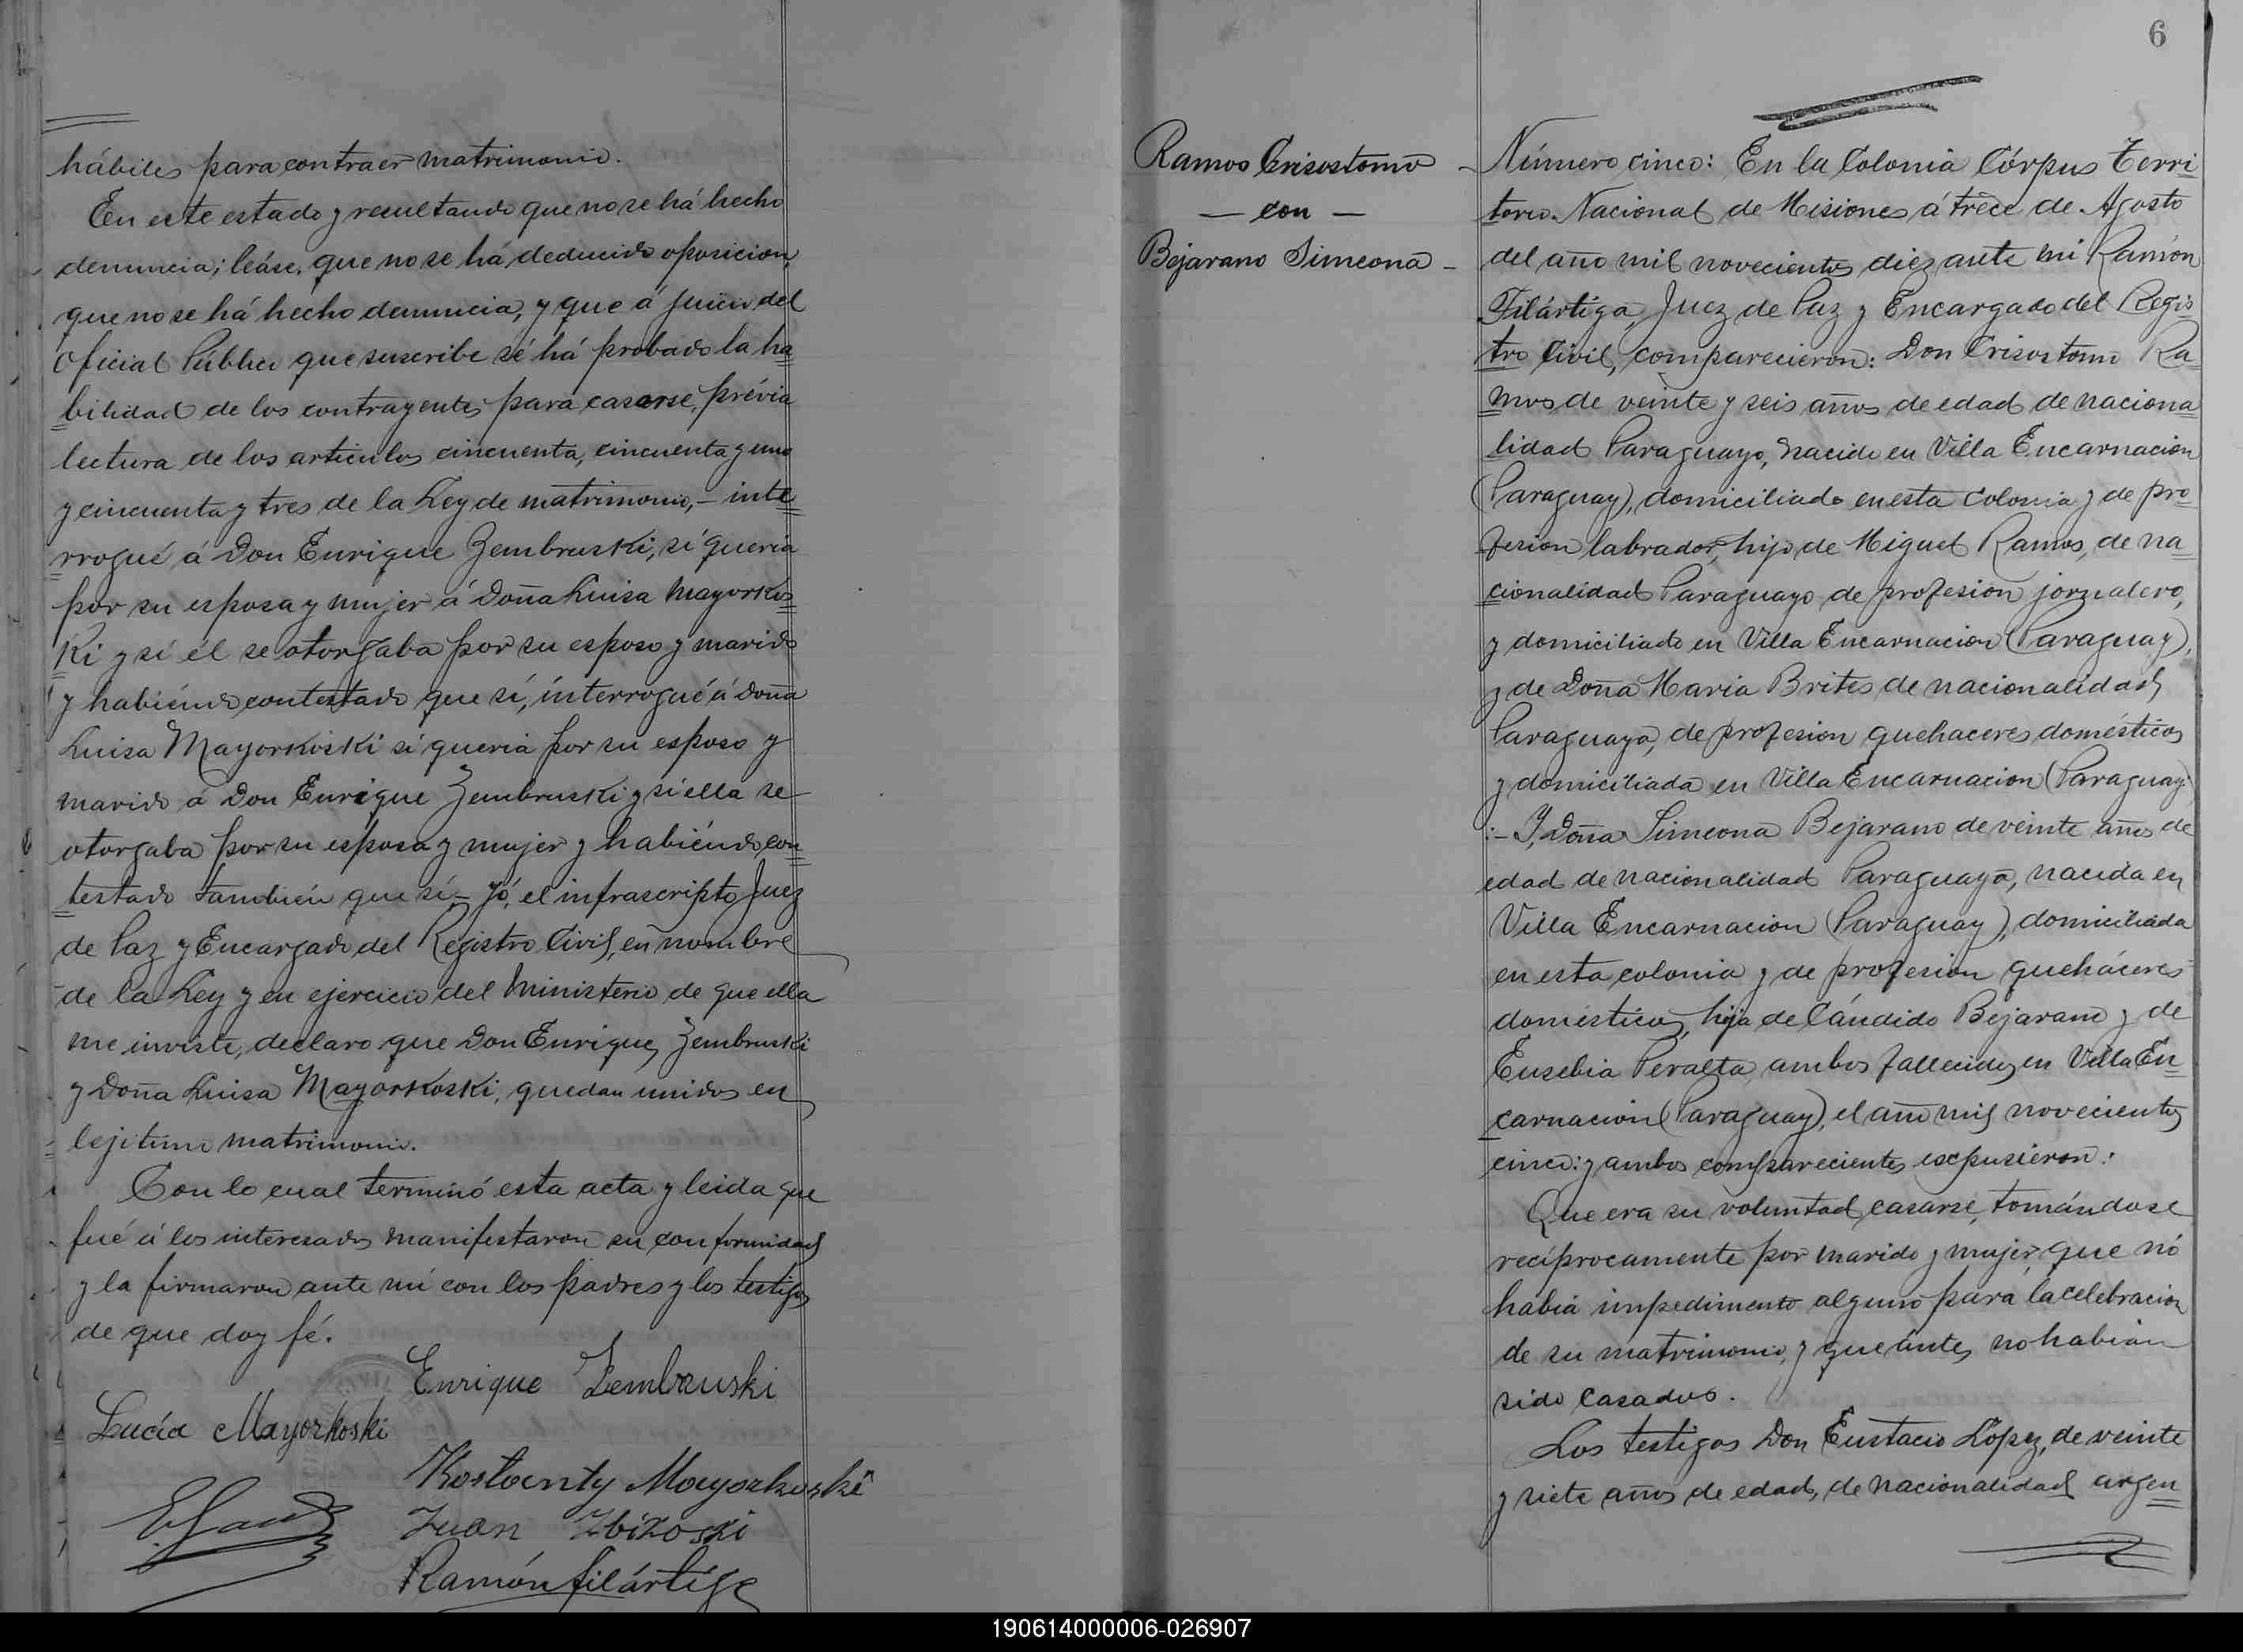 hábiles para contraer matrimonio.
En este estado y resultando que no se há hecho
denuncia; leáse, que no se há deducido oposicion,
que no se há hecho denuncia, y que á juicio del
Oficial Público que suscribe sé há probado la ha
bilidad de los contrayentes para casarse, prévia
lectura de los articulos cincuenta, cincuenta y uno
y cincuenta y tres de la Ley de matrimonio, - inte
rrogué á Don Enrique Zembruski, si queria
por su esposa y mujer á Doña Luisa Mayorkos
ki y si él se otorgaba por su esposo y marido
y habiéndo contestado que sí, interrogué á Doña
Luisa Mayorkoski si queria por su esposo y
marido á Don Enrique Zembruski y si ella se
otorgaba por su esposa y mujer y habiéndo con
testado tambien que sí - Yó, el infrascripto Juez
de Paz y Encargado del Registro Civil, en nombre
de la Ley y en ejercicio del Ministerio de que ella
me inviste, declaro que Don Enrique Zembruski
y Doña Luisa Mayorkoski, quedan unidos en
lejitimo matrimonio.
Con lo cual terminó esta acta y leida que
fué á los interesados manifestaron su conformidad
y la firmaron ante mí con los padres y los testigos
de que doy fé.
Enrique Zembruski
Lucía Mayorkoski
Kostanty Mayorkoski
Juan Zbikoski
Ramón Filártiga
6
Ramos Crisostomo
- con -
Bejarano Simeona -
Número cinco: En la Colonia Córpus Terri
torio Nacional de Misiones á trece de Agosto
del año mil novecientos diez ante mi Ramón
Filártiga, Juez de Paz y Encargado del Regis
tro Civil, comparecieron: Don Crisostomo Ra
mos de veinte y seis años de edad de naciona
lidad Paraguayo, nacido en Villa Encarnacion
(Paraguay), domiciliado en esta Colonia y de pro
fesion labrador, hijo de Miguel Ramos, de na
cionalidad Paraguayo de profesion jornalero,
y domiciliado en Villa Encarnacion (Paraguay),
y de Doña Maria Brites de nacionalidad
Paraguaya, de profesion quehaceres domésticos
y domiciliada en Villa Encarnacion (Paraguay)
:- Y, Doña Simeona Bejarano de veinte años de
edad de nacionalidad Paraguaya, nacida en
Villa Encarnacion (Paraguay), domiciliada
en esta colonia y de profesion queháceres
domésticos, hija de Cándido Bejarano y de
Eusebia Peralta ambos fallecidos en Villa En
carnacion (Paraguay), el año mil novecientos
cinco: y ambos comparecientes escpusieron:
Que era su voluntad casarse, tomándose
recíprocamente por marido y mujer, que nó
habia impedimento alguno para la celebracion
de su matrimonio, y que ántes no habian
sido casados.
Los testigos Don Eustacio López, de veinte
y siete años de edad, de nacionalidad argen
190614000006-026907